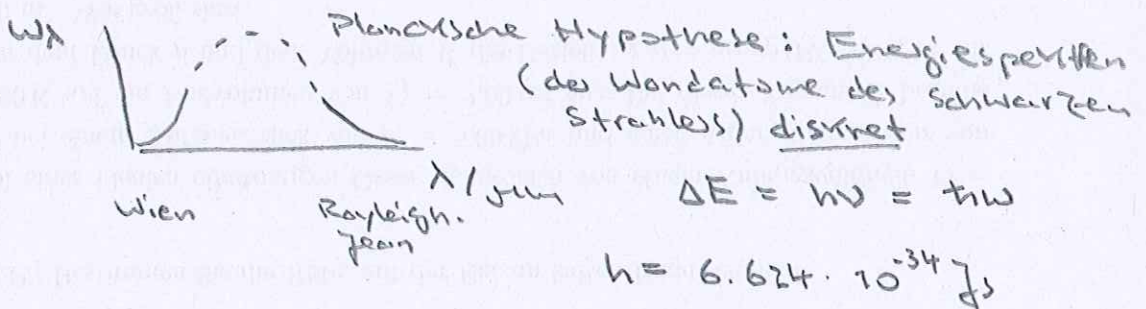 Wλ
Plancksche Hypothese: Energiespektren
(der Wandatome des schwarzen
Strahless) diskret
Wien
Rayleigh.
Jean
λ/μm
ΔE = hν = ħω
h = 6.624 · 10^-34 Js